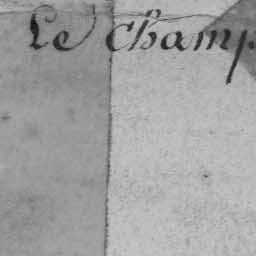 Le Champ